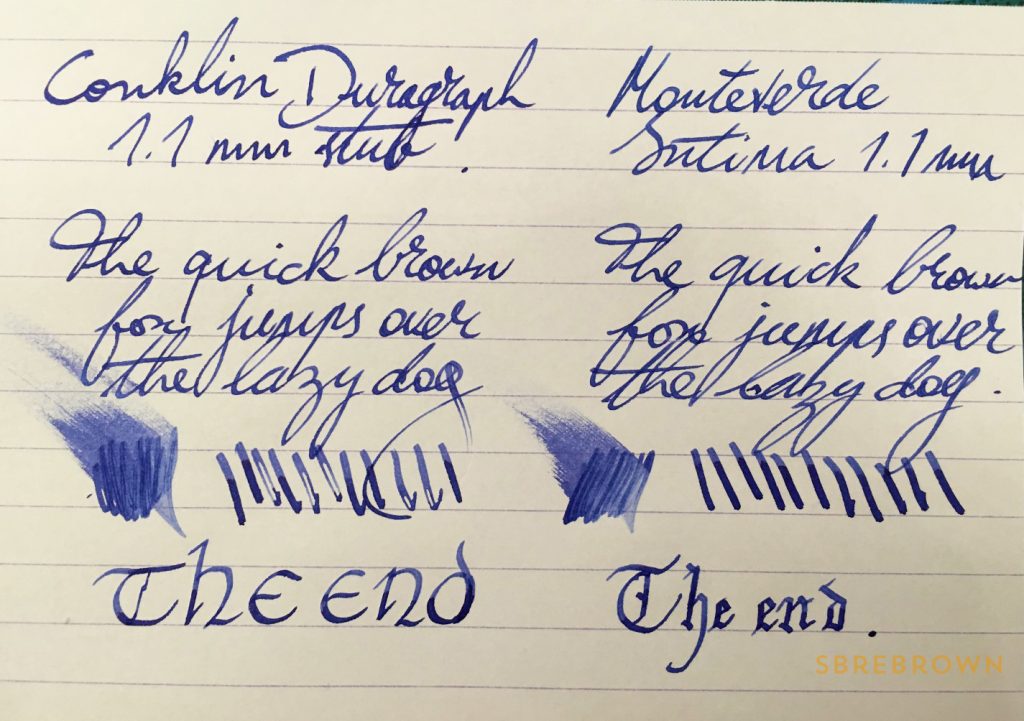 Conklin Duragraph
1.1 mm stub.
The quick brown
fox jumps over
the lazy dog
The End
Monteverde
Intima 1.1 mm
The quick brown
fox jumps over
the lazy dog.
The end.
SBREBROWN